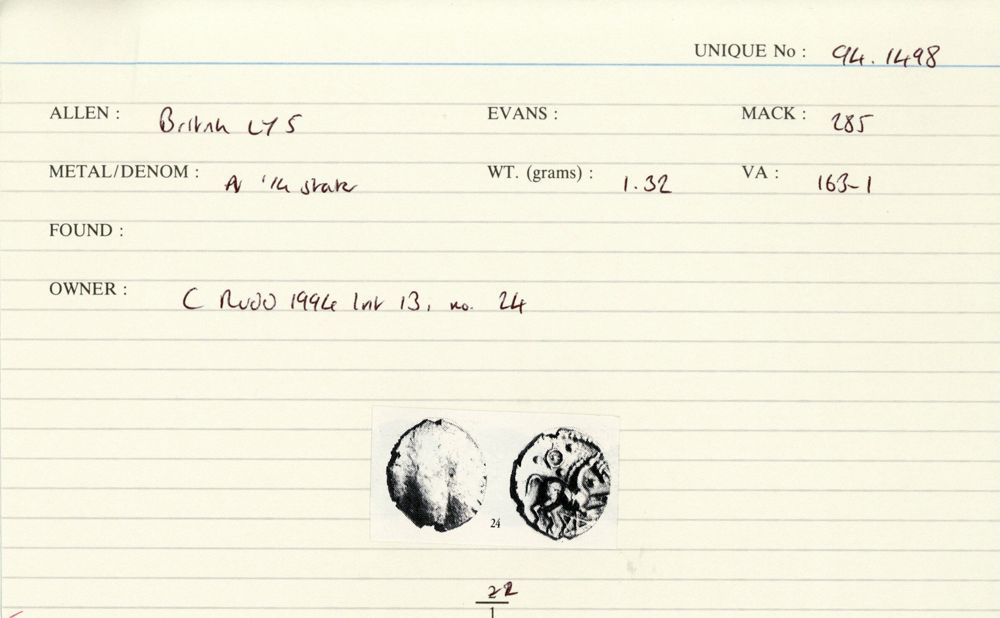 UNIQUE No : 94.1498
ALLEN : British LY5 EVANS : MACK : 285
METAL/DENOM : AV 1/4 stater WT. (grams) : 1.32 VA : 163-1
FOUND :
OWNER : C RUDD 1994 list 13, no. 24
24
22
1